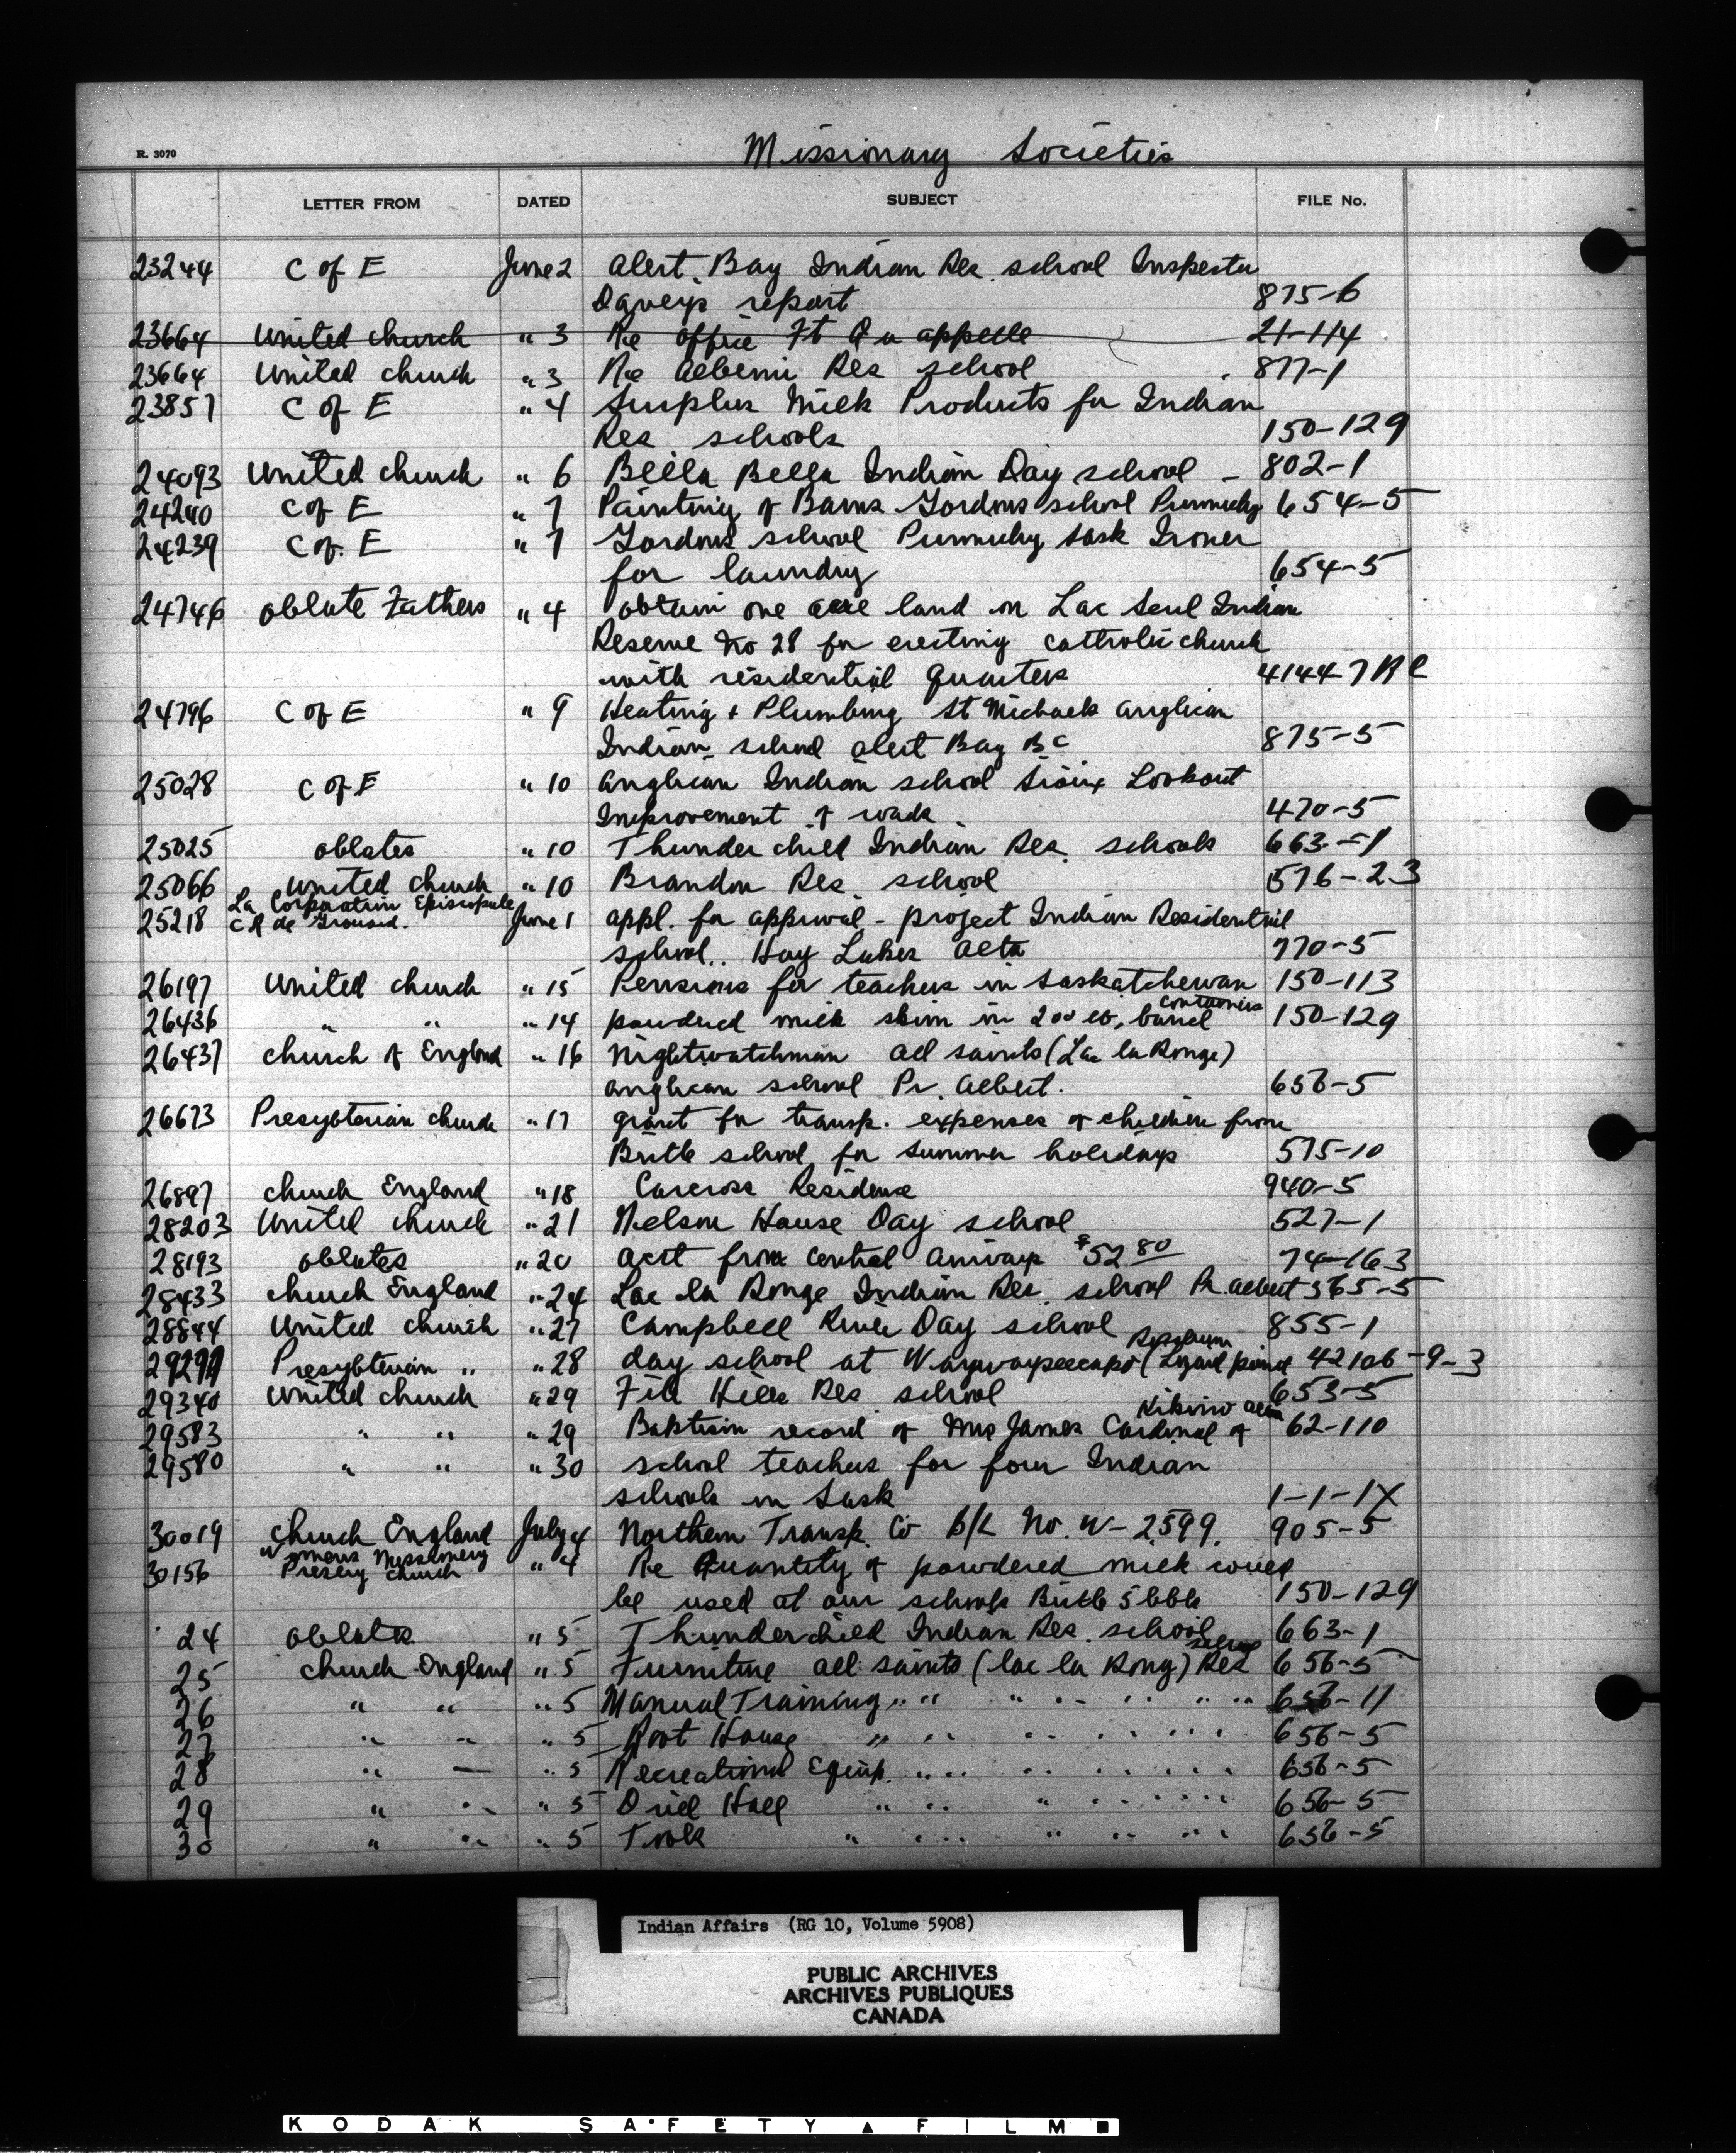 Missionary Societies
R. 3070
LETTER FROM DATED SUBJECT FILE No.
23244 C of E June 2 Alert Bay Indian Res. school Inspector
Davey's report 875-6
23664 United church " 3 Re office Ft Qu appelle 21-114
23664 United church " 3 Re Alberni Res school 877-1
23857 C of E " 4 Surplus Milk Products for Indian
Res schools 150-129
24093 United church " 6 Bella Bella Indian Day school - 802-1
24240 C of E " 7 Painting of Barns Gordons school Punnichy 654-5
24239 C of. E " 7 Gordons school Punnichy Sask Ironer
for laundry 654-5
24746 oblate Fathers " 4 obtain one acre land on Lac Seul Indian
Reserve No 28 for erecting catholic church
with residential quarters 41447 RC
24796 C of E " 9 Heating + Plumbing St Michaels Anglican
Indian school Alert Bay BC 875-5
25028 C of E " 10 Anglican Indian school Sioux Lookout
Improvement of roads 470-5
25025 oblates " 10 Thunderchild Indian Res. schools 663-1
25066 United church " 10 Brandon Res. school 576-23
La Corporation Episcopale
25218 C R de Grouard. June 1 appl. for approval - project Indian Residential
school.. Hay Lakes Alta 770-5
26197 United church " 15 Pensions for teachers in Saskatchewan 150-113
containers
26436 " " " 14 powdered milk skim in 200 lb, barrel 150-129
26437 church of England " 16 Nightwatchman All saints (Lac la Ronge)
Anglican school Pr. Albert. 656-5
26673 Presbyterian church " 17 grant for transp. expenses of children from
Birtle school for summer holidays 575-10
26897 church England " 18 Carcross Residence 940-5
28203 United church " 21 Nelson House Day school 527-1
28193 oblates " 20 acct from Central Airways $52 80 74-163
28433 church England " 24 Lac la Ronge Indian Res. school Pr. Albert 565-5
28844 United church " 27 Campbell River Day school 855-1
Rossburn
Presbyterian " " 28 day school at Waywayseecapo (Lizard point 42106-9-3
29340 United church " 29 File Hills Res school 653-5
Kikino Alta
29583 " " " 29 Baptism record of Mrs James Cardinal of 62-110
29580 " " " 30 school teachers for four Indian
schools in Sask 1-1-1X
30019 church England July 4 Northern Transp. Co B/L No. W-2599. 905-5
Womens Missionery
30156 Presby church " 4 Re Quantity of powdered milk could
be used at our schools Birtle 5 bbls 150-129
24 oblates " 5 Thunderchild Indian Res. school 663-1
school
25 church England " 5 Furniture All saints (lac la Rong) Res 656-5
26 " " " 5 Manual Training " " " " " " " 656-11
27 " " " 5 Root House " " " " " " 656-5
28 " " " 5 Recreational Equip. " " " " " " 656-5
29 " " " 5 Drill Hall " " " " " " 656-5
30 " " " 5 Tools " " " " " " 656-5
Indian Affairs (RG 10, Volume 5908)
PUBLIC ARCHIVES
ARCHIVES PUBLIQUES
CANADA
KODAK SAFETY FILM